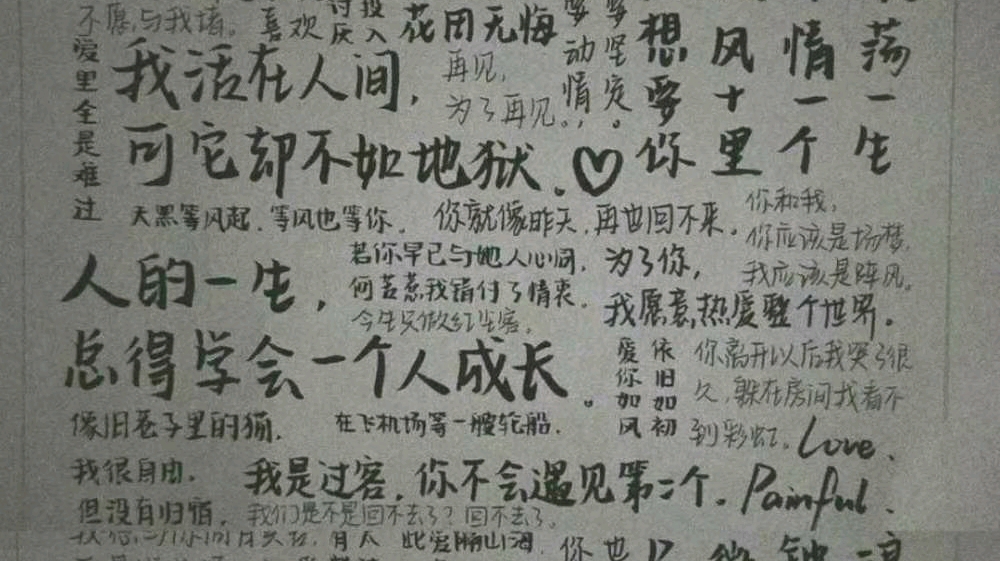 不愿与我堵。
喜欢
投入
花团无悔
爱里全是难过
我活在人间，
可它却不如地狱。♡
再见，
为了再见。
动情
坚定
想要你
风十里
情一个
荡一生
天黑等风起，等风也等你。
你就像昨天，再也回不来。
你和我，
你应该是场梦，
我应该是阵风。
人的一生，
总得学会一个人成长。
若你早已与她人心同，
何苦惹我错付了情衷。
今生只做红尘客。
为了你，
我愿意热爱整个世界。
爱你如风
依旧如初
你离开以后我哭了很
久，躲在房间我看不
到彩虹。
Love.
Painful.
像旧巷子里的猫，
我很自由，
但没有归宿。
在飞机场等一艘轮船。
我是过客，你不会遇见第二个。
我们是不是回不去了？回不去了。
此爱隔山海
你也